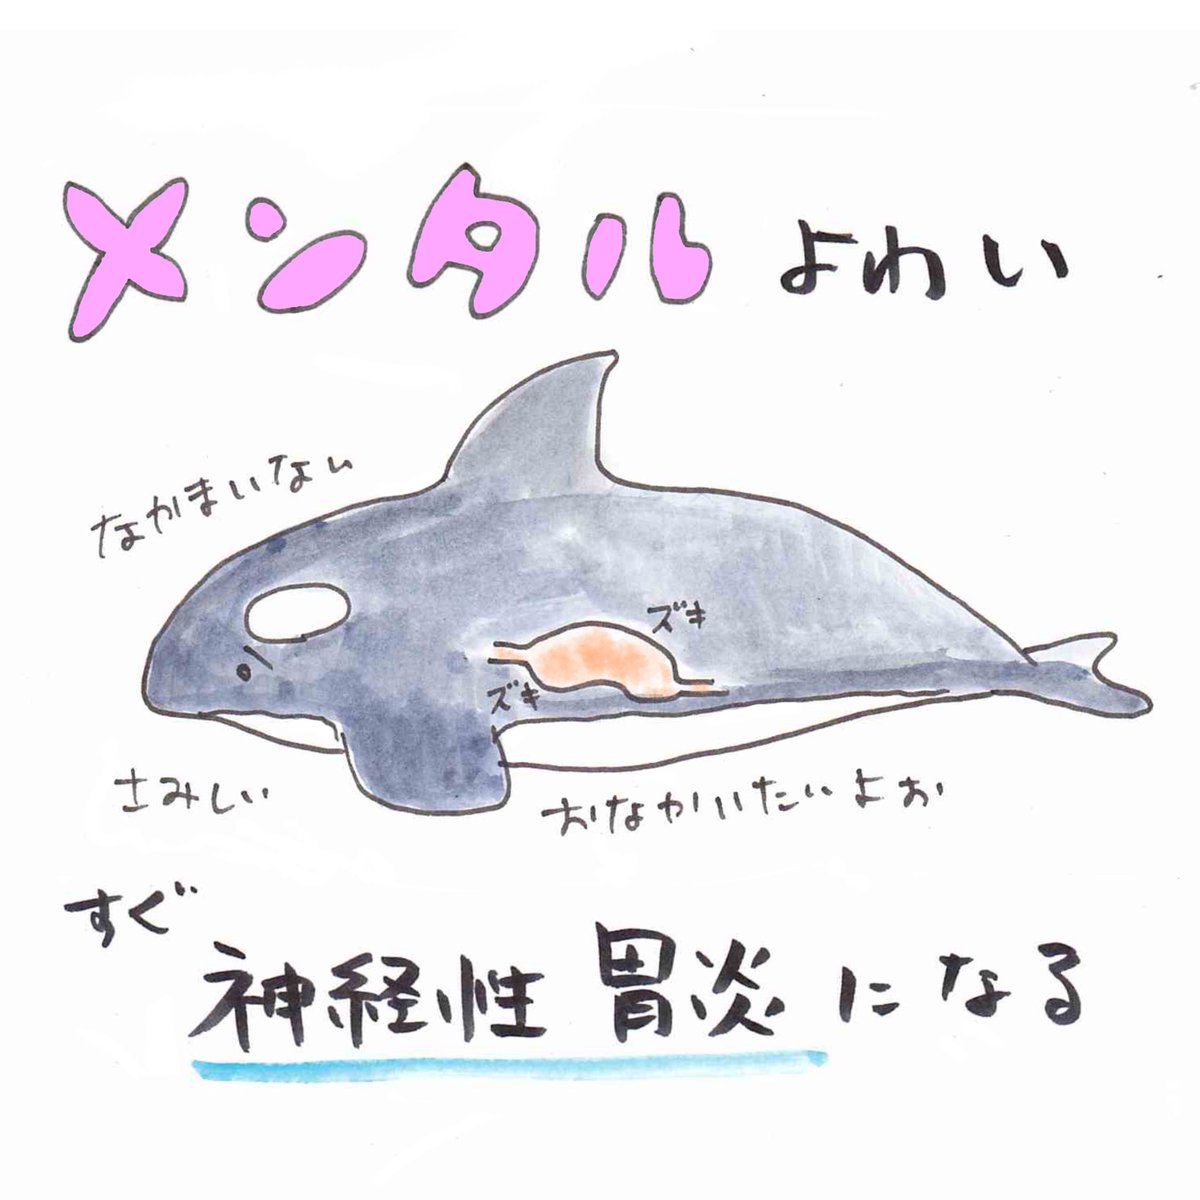 メンタルよわい
なかまいない
ズキ
ズキ
さみしい
おなかいたいよお
すぐ
神経性胃炎になる